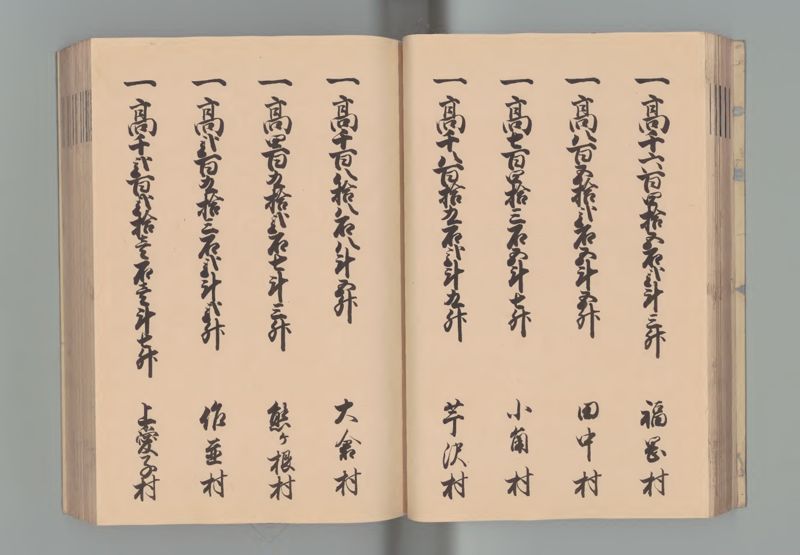 一高千六百四拾五石弐斗三升 福岡村
一高八百五拾弐石五斗五升 田中村
一高七百四拾三石五斗七升 小角村
一高千八百拾五石弐斗九升 芋沢村
一高千百八拾八石八斗五升 大倉村
一高四百九拾弐石七斗三升 熊ケ根村
一高弐百五拾三石弐斗弐升 作並村
一高千弐百弐拾壱石壱斗七升 上愛子村